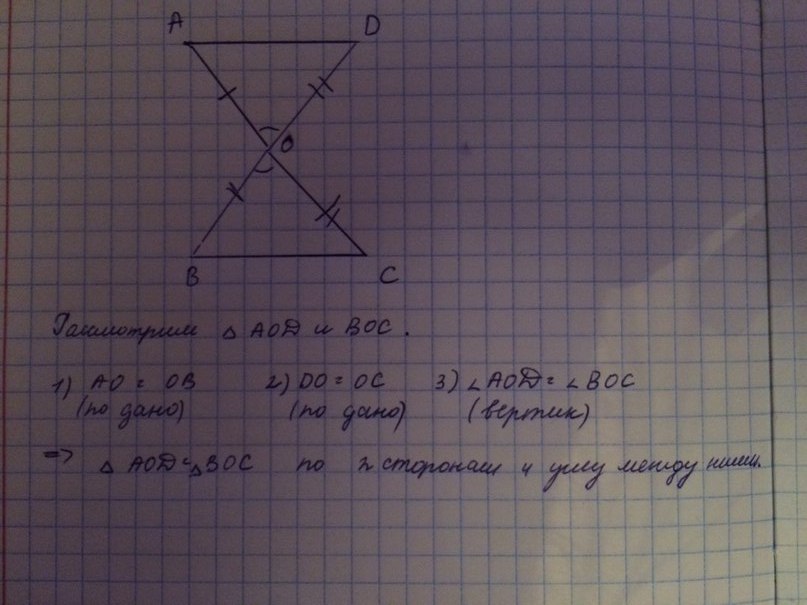 A D
O
B C
Рассмотрим △ AOD и BOC.
1) AO = OB 2) DO = OC 3) ∠AOD = ∠BOC
(по дано) (по дано) (вертик)
=> △ AOD = △BOC по 2 сторонам и углу между ними.